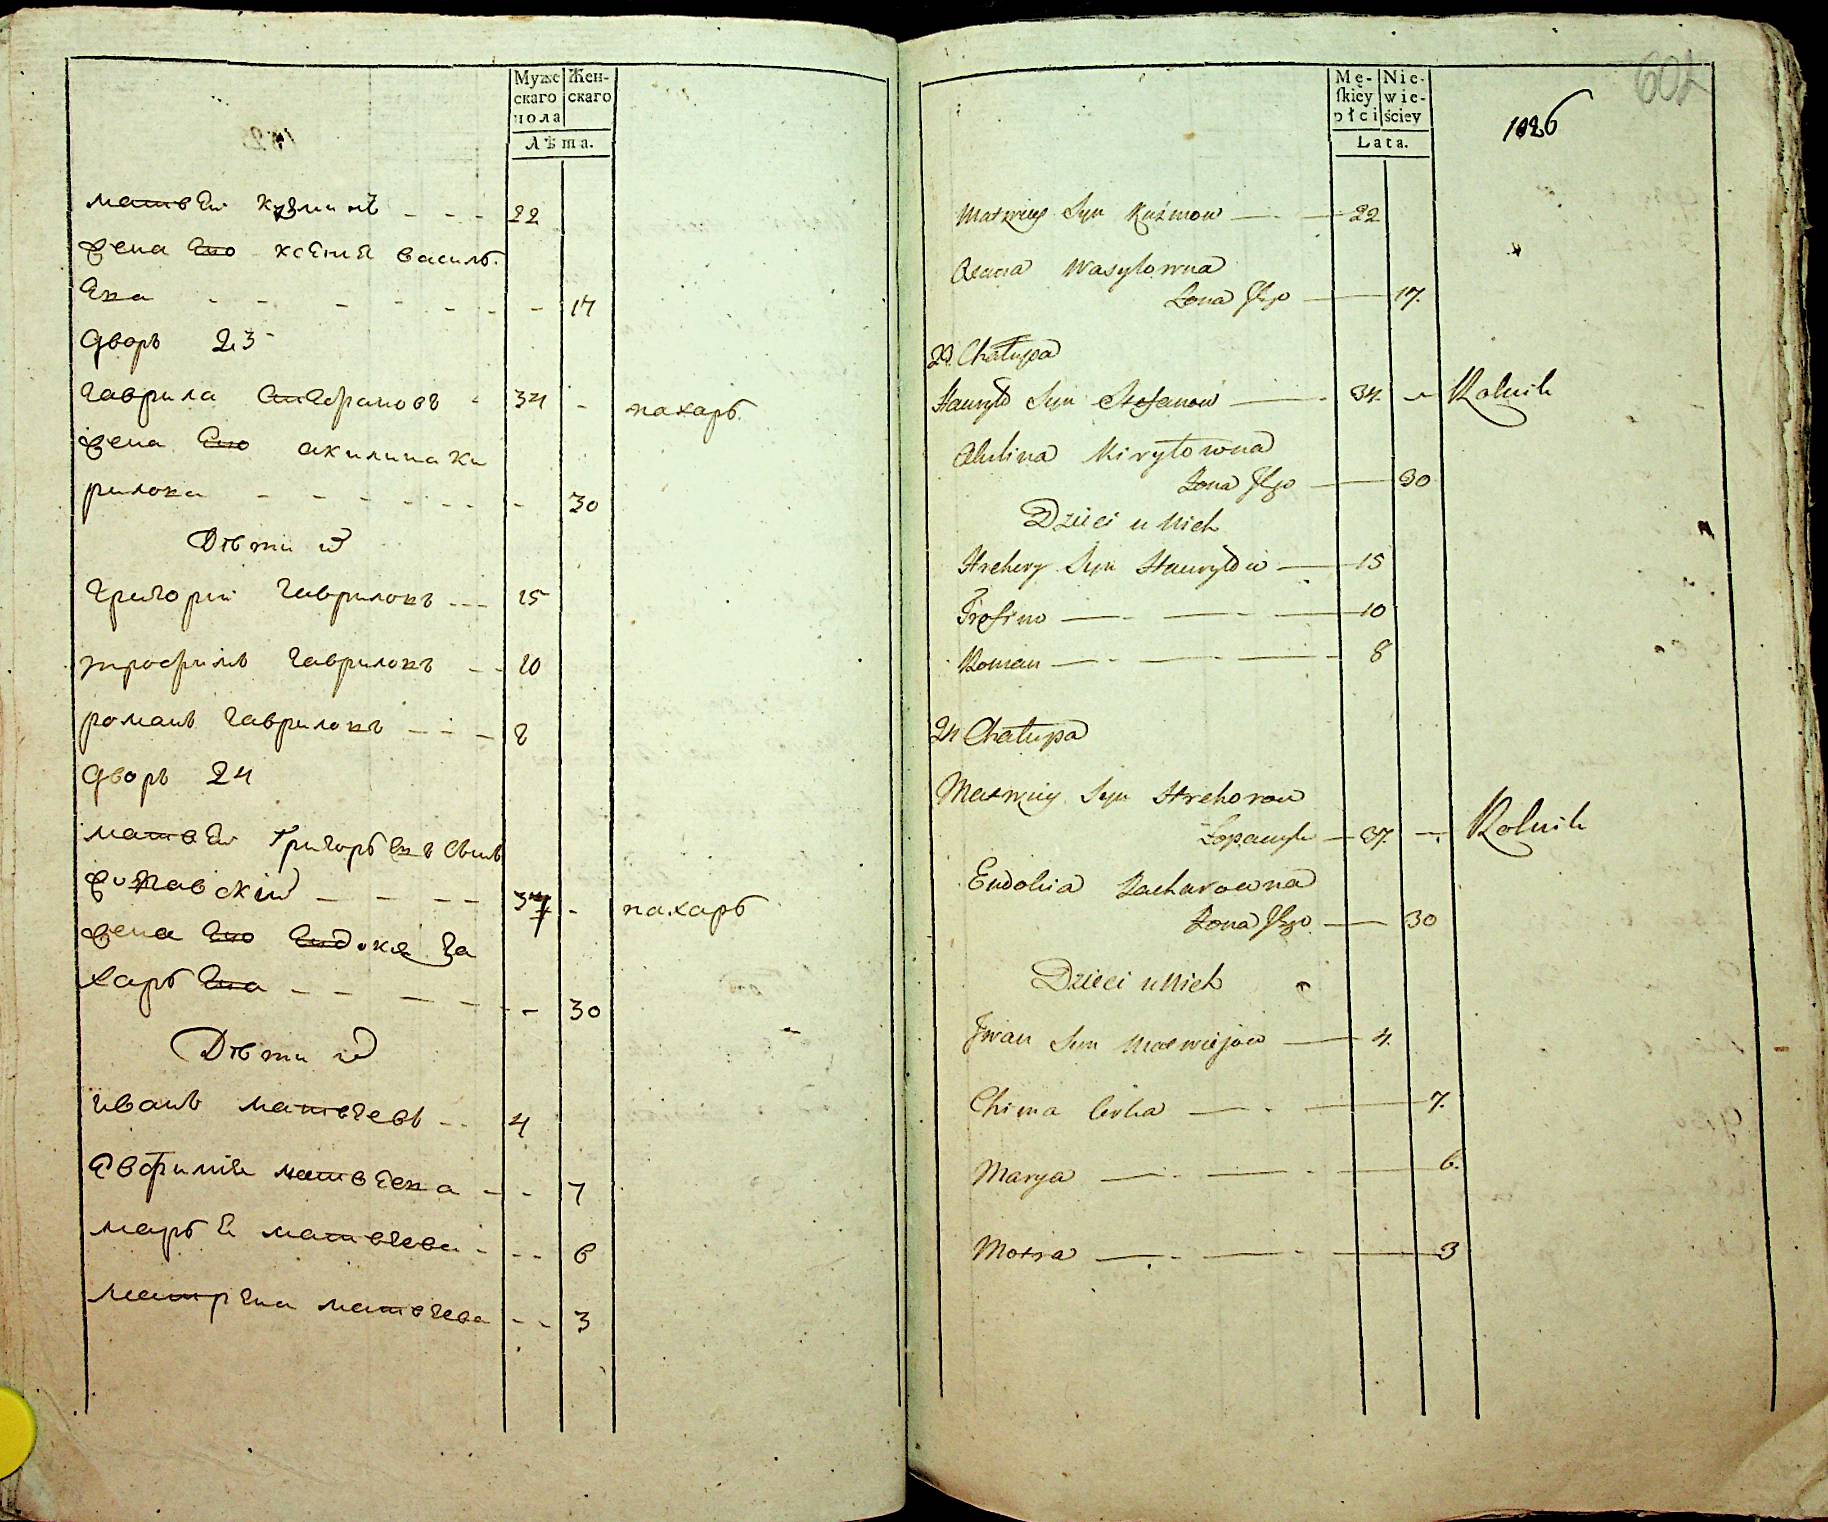 Муже
скаго
пола
Жен-
скаго
Лѣта.
матвей кузминъ - - - 22
жена его ксения василь.
ева - - - - - - 17
дворъ 23
гаврила стефановъ - 34 - пахарь
жена его акилина ки
рилова - - - - - - 30
Дѣти их
григорий гавриловъ - - - 15
трофимъ гавриловъ - - 10
романъ гавриловъ - - - 8
дворъ 24
матвей григорьевъ сынъ
- - - - 37 - пахарь
жена его евдокя За
харьева - - - - - - 30
Дѣти их
иванъ матвеевъ - - 4
Евфимия матвеева - - 7
марья матвеева - - - 6
матрена матвеева - - 3
Mę-
ſkiey
płci
Nie-
wie-
ściey
Lata.
602
1026
Matwiey Syn Kuźmow 22
Wasylowna
Żona Jego 17.
23 Chałupa
Hauryło Syn Stefanow 34. Rolnik
Akulina Kiryłowna
Żona Jego 30
Dzieci u Nich
Hrehory Syn Hauryłow 15
Trofim 10
Roman 8
24 Chałupa
Matwiey Syn Hrehorow
37. Rolnik
Eudokia Zacharowna
Żona Jego 30
Dzieci u Nich
Jwan Syn Matwiejow 4.
Chima Corka 7.
Marya 6.
Motra 3